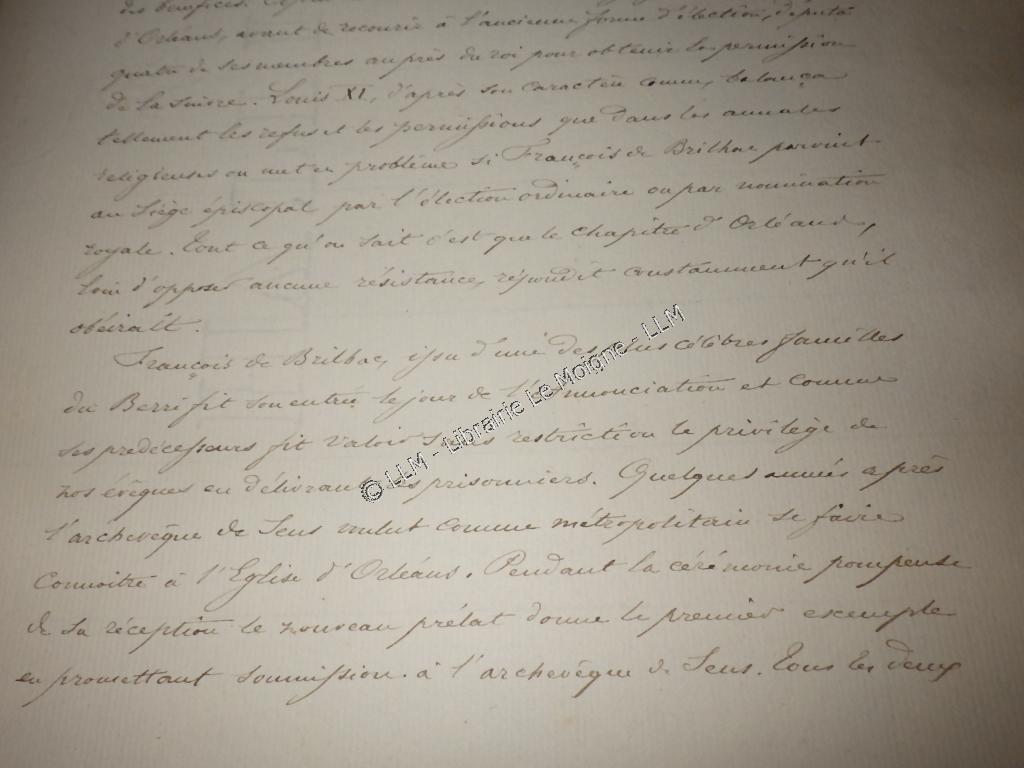 des bénéfices.
d'Orléans, avant de recourir à l'ancienne forme d'élection, députa
quatre de ses membres auprès du roi pour obtenir la permission
de la suivre. Louis XI, d'après son caractère connu, balança
tellement les refus et les permissions que dans les annales
religieuses on met en problème si François de Brilhac parvint
au Siège épiscopal par l'élection ordinaire ou par nomination
royale. Tout ce qu'on sait c'est que le chapitre d'Orléans,
loin d'opposer aucune résistance, répondit constamment qu'il
obéirait.
François de Brilhac, issu d'une des plus célèbres familles
du Berri fit son entrée le jour de l'Annonciation et comme
ses prédécesseurs fit valoir sans restriction le privilège de
nos évêques en délivrant les prisonniers. Quelques années après
l'archevêque de Sens voulut comme métropolitain se faire
connoitre à l'Eglise d'Orléans. Pendant la cérémonie pompeuse
de sa réception le nouveau prélat donne le premier exemple
en promettant soumission à l'archevêque de Sens. Tous les deux
© LLM - Librairie Le Moigne - LLM